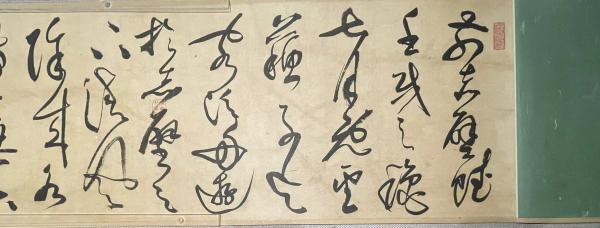 前赤壁賦
壬戌之秋
七月既望
蘇子與
客泛舟遊
於赤壁之
下清風
徐來水